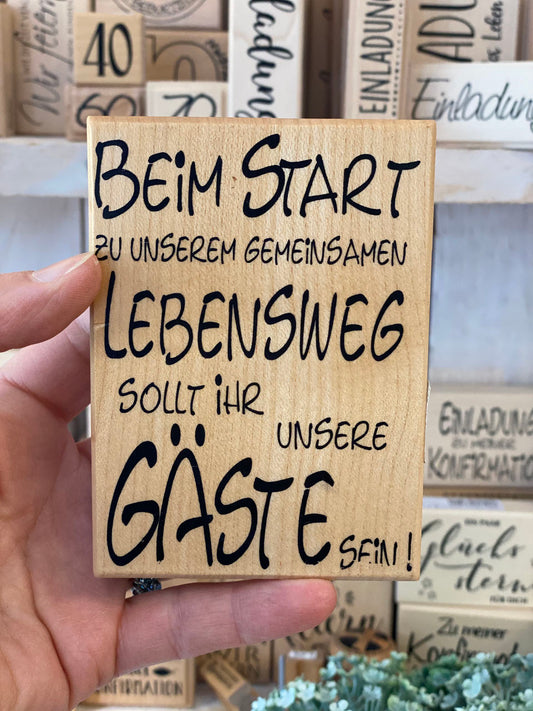 Wir feiern
40
60
70
Einladung
EINLADUNG
Einladung
BEiM START
ZU UNSEREM GEMEiNSAMEN
LEBENSWEG
SOLLT iHR
UNSERE
GÄSTE SEiN!
EiNLADUNG
ZU MEINER
KONFIRMATIO
EIN PAAR
Glücks
stern
FÜR DICH
Zu meiner
Konfirmat
FIRMATION